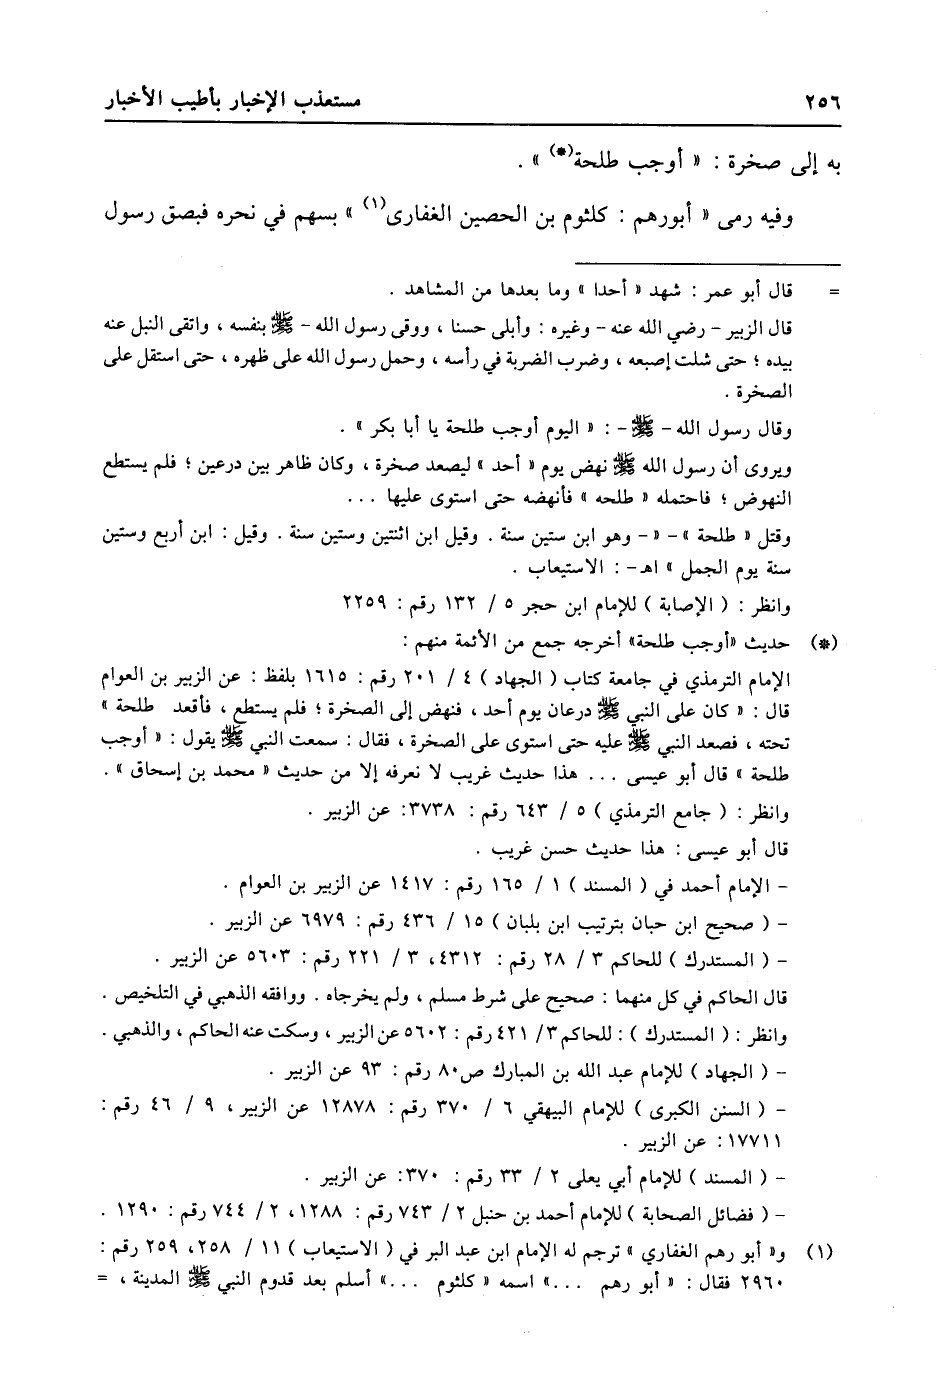 ٢٥٦ مستعذب الإخبار بأطيب الأخبار
به إلى صخرة : « أوجب طلحة(*) » .
وفيه رمى « أبورهم : كلثوم بن الحصين الغفارى(١) » بسهم في نحره فبصق رسول
= قال أبو عمر : شهد « أحدا » وما بعدها من المشاهد .
قال الزبير – رضي الله عنه – وغيره : وأبلى حسنا ، ووقى رسول الله – ﷺ بنفسه ، واتقى النبل عنه
بيده ؛ حتى شلت إصبعه ، وضرب الضربة في رأسه ، وحمل رسول الله على ظهره ، حتى استقل على
الصخرة .
وقال رسول الله – ﷺ – : « اليوم أوجب طلحة يا أبا بكر » .
ويروى أن رسول الله ﷺ نهض يوم « أحد » ليصعد صخرة ، وكان ظاهر بين درعين ؛ فلم يستطع
النهوض ؛ فاحتمله « طلحه » فأنهضه حتى استوى عليها ...
وقتل « طلحة » – « – وهو ابن ستين سنة . وقيل ابن اثنتين وستين سنة . وقيل : ابن أربع وستين
سنة يوم الجمل » اهـ – : الاستيعاب .
وانظر : ( الإصابة ) للإمام ابن حجر ٥ / ١٣٢ رقم : ٢٢٥٩
(*) حديث «أوجب طلحة» أخرجه جمع من الأئمة منهم :
الإمام الترمذي في جامعة كتاب ( الجهاد ) ٤ / ٢٠١ رقم : ١٦١٥ بلفظ : عن الزبير بن العوام
قال : « كان على النبي ﷺ درعان يوم أحد ، فنهض إلى الصخرة ؛ فلم يستطع ، فأقعد طلحة »
تحته ، فصعد النبي ﷺ عليه حتى استوى على الصخرة ، فقال : سمعت النبي ﷺ يقول : « أوجب
طلحة » قال أبو عيسى ... هذا حديث غريب لا نعرفه إلا من حديث « محمد بن إسحاق » .
وانظر : ( جامع الترمذي ) ٥ / ٦٤٣ رقم : ٣٧٣٨: عن الزبير .
قال أبو عيسى : هذا حديث حسن غريب .
– الإمام أحمد في ( المسند ) ١ / ١٦٥ رقم : ١٤١٧ عن الزبير بن العوام .
– ( صحيح ابن حبان بترتيب ابن بلبان ) ١٥ / ٤٣٦ رقم : ٦٩٧٩ عن الزبير .
– ( المستدرك ) للحاكم ٣ / ٢٨ رقم : ٤٣١٢، ٣ / ٢٢١ رقم : ٥٦٠٣ عن الزبير .
قال الحاكم في كل منهما : صحيح على شرط مسلم ، ولم يخرجاه . ووافقه الذهبي في التلخيص .
وانظر : ( المستدرك ) : للحاكم ٣/ ٤٢١ رقم : ٥٦٠٢ عن الزبير ، وسكت عنه الحاكم ، والذهبي .
– ( الجهاد ) للإمام عبد الله بن المبارك ص٨٠ رقم : ٩٣ عن الزبير .
– ( السنن الكبرى ) للإمام البيهقي ٦ / ٣٧٠ رقم : ١٢٨٧٨ عن الزبير ، ٩ / ٤٦ رقم :
١٧٧١١: عن الزبير .
– ( المسند ) للإمام أبي يعلى ٢ / ٣٣ رقم : ٣٧٠: عن الزبير .
– ( فضائل الصحابة ) للإمام أحمد بن حنبل ٢ / ٧٤٣ رقم : ١٢٨٨، ٢ / ٧٤٤ رقم : ١٢٩٠ .
(١) و« أبو رهم الغفاري » ترجم له الإمام ابن عبد البر في ( الاستيعاب ) ١١ / ٢٥٨، ٢٥٩ رقم :
٢٩٦٠ فقال : « أبو رهم ...» اسمه « كلثوم ...» أسلم بعد قدوم النبي ﷺ المدينة ، =